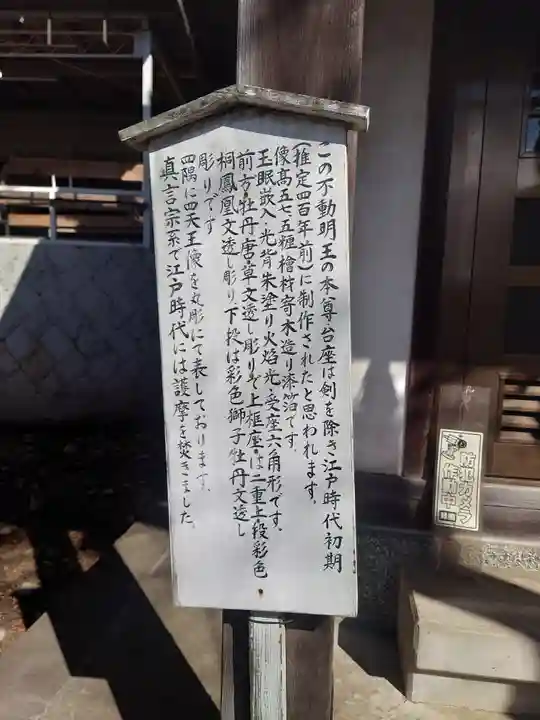 この不動明王の本尊台座は剣を除き江戸時代初期
(推定四百年前)に制作されたと思われます。
像高五七五糎檜材寄木造り漆箔です。
玉眼嵌入・光背朱塗り火焰光・受座六角形です。
前方・牡丹・唐・草文透し彫りで上框座・は二重上段彩色
桐鳳凰文透し彫り下段は彩色獅子牡丹文透し
彫りです
四隅に四天王像を丸彫にて表しております。
真言宗系で江戸時代には護摩を焚きました。
防犯カメラ
作動中